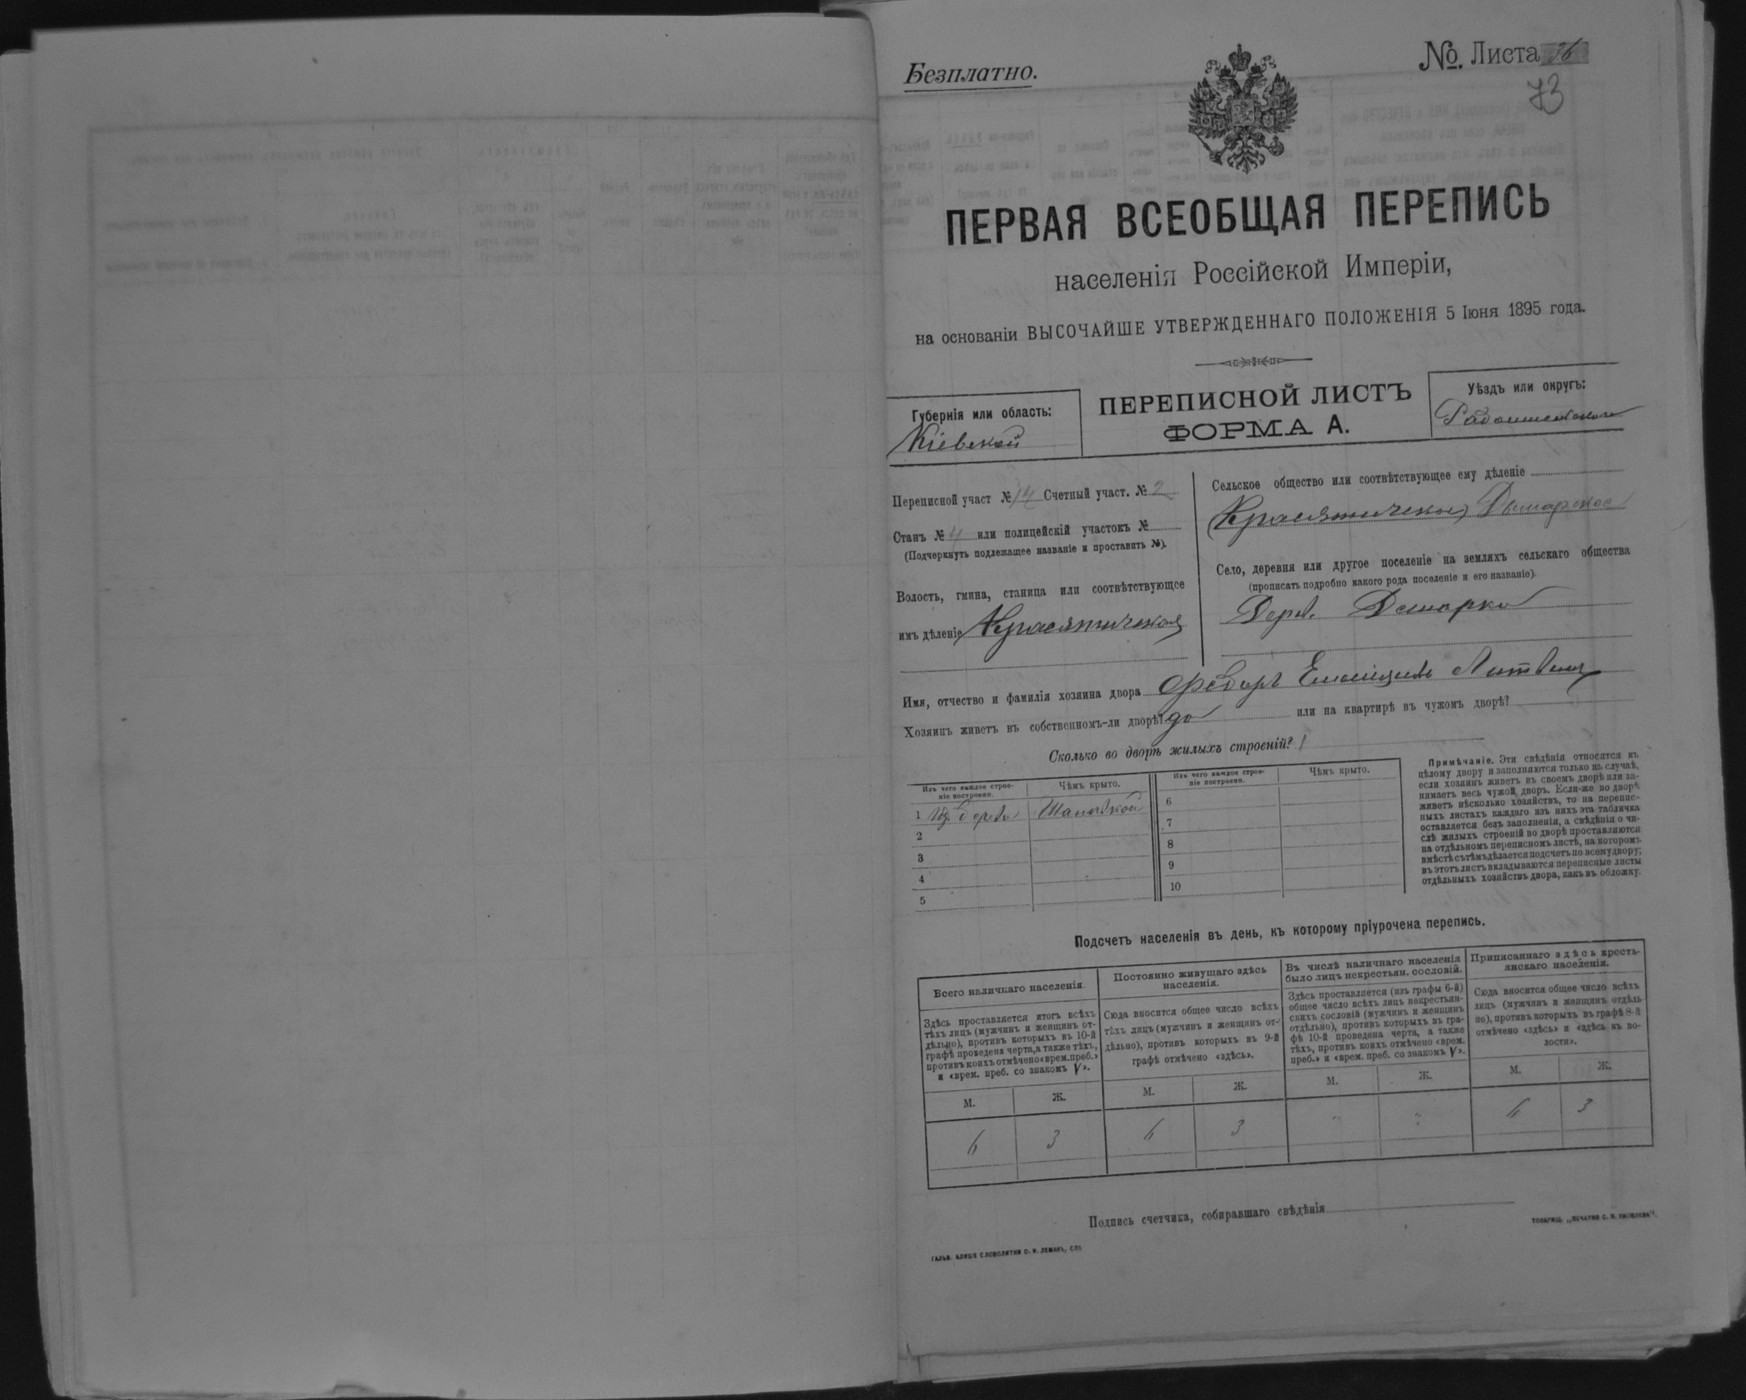 Безплатно.
№ Листа
73
ПЕРВАЯ ВСЕОБЩАЯ ПЕРЕПИСЬ
населенія Россійской Имперіи,
на основаніи ВЫСОЧАЙШЕ УТВЕРЖДЕННАГО ПОЛОЖЕНІЯ 5 Іюня 1895 года.
Губернія или область:
Кіевской
ПЕРЕПИСНОЙ ЛИСТЪ
ФОРМА А.
Уѣздъ или округъ:
Радомысльскаго
Переписной участ № 14 Счетный участ. № 2
Станъ № 4 или полицейскій участокъ №
(Подчеркнуть подлежащее названіе и проставить №).
Волость, гмина, станица или соотвѣтствующее
имъ дѣленіе Красятичская
Сельское общество или соотвѣтствующее ему дѣленіе
Село, деревня или другое поселеніе на земляхъ сельскаго общества
(прописать подробно какого рода поселеніе и его названіе).
Дерев.
Имя, отчество и фамилія хозяина двора Федоръ Литвин
Хозяинъ живетъ въ собственномъ-ли дворѣ? да или на квартирѣ въ чужомъ дворѣ?
Сколько во дворѣ жилыхъ строеній? 1
Изъ чего каждое строе-
ніе построено.
Чѣмъ крыто.
Изъ чего каждое строе-
ніе построено.
Чѣмъ крыто.
1 Изъ дерева
2
3
4
5
6
7
8
9
10
Примѣчаніе. Эти свѣдѣнія относятся къ
цѣлому двору и заполняются только въ случаѣ,
если хозяинъ живетъ въ своемъ дворѣ или за-
нимаетъ весь чужой дворъ. Если-же во дворѣ
живетъ нѣсколько хозяйствъ, то на перепис-
ныхъ листахъ каждаго изъ нихъ эта табличка
оставляется безъ заполненія, а свѣдѣнія о чи-
слѣ жилыхъ строеній во дворѣ проставляются
на отдѣльномъ переписномъ листѣ, на которомъ
вмѣстѣ съ тѣмъ дѣлается подсчетъ по всему двору;
въ этотъ листъ вкладываются переписные листы
отдѣльныхъ хозяйствъ двора, какъ въ обложку.
Подсчетъ населенія въ день, къ которому пріурочена перепись.
Всего наличнаго населенія.
Здѣсь проставляется итогъ всѣхъ
тѣхъ лицъ (мужчинъ и женщинъ от-
дѣльно), противъ которыхъ въ 10-й
графѣ проведена черта, а также тѣхъ,
противъ коихъ отмѣчено «врем. преб.»
и «врем. преб. со знакомъ V».
Постоянно живущаго здѣсь
населенія.
Сюда вносится общее число всѣхъ
тѣхъ лицъ (мужчинъ и женщинъ от-
дѣльно), противъ которыхъ въ 9-й
графѣ отмѣчено «здѣсь».
Въ числѣ наличнаго населенія
было лицъ некрестьян. сословій.
Здѣсь проставляется (изъ графы 6-й)
общее число всѣхъ лицъ некрестьян-
скихъ сословій (мужчинъ и женщинъ
отдѣльно), противъ которыхъ въ гра-
фѣ 10-й проведена черта, а также
тѣхъ, противъ коихъ отмѣчено «врем.
преб.» и «врем. преб. со знакомъ V».
Приписаннаго здѣсь кресть-
янскаго населенія.
Сюда вносится общее число всѣхъ
лицъ (мужчинъ и женщинъ отдѣль-
но), противъ которыхъ въ графѣ 8-й
отмѣчено «здѣсь» и «здѣсь въ во-
лости».
М. Ж. М. Ж. М. Ж. М. Ж.
6 3 6 3 " " 6 3
Подпись счетчика, собиравшаго свѣдѣнія
ГАЛЬВ. КЛИШЕ СЛОВОЛИТНИ О. И. ЛЕМАНЪ, СПБ
ТОВАРИЩ. „ПЕЧАТНЯ С. П. ЯКОВЛЕВА".